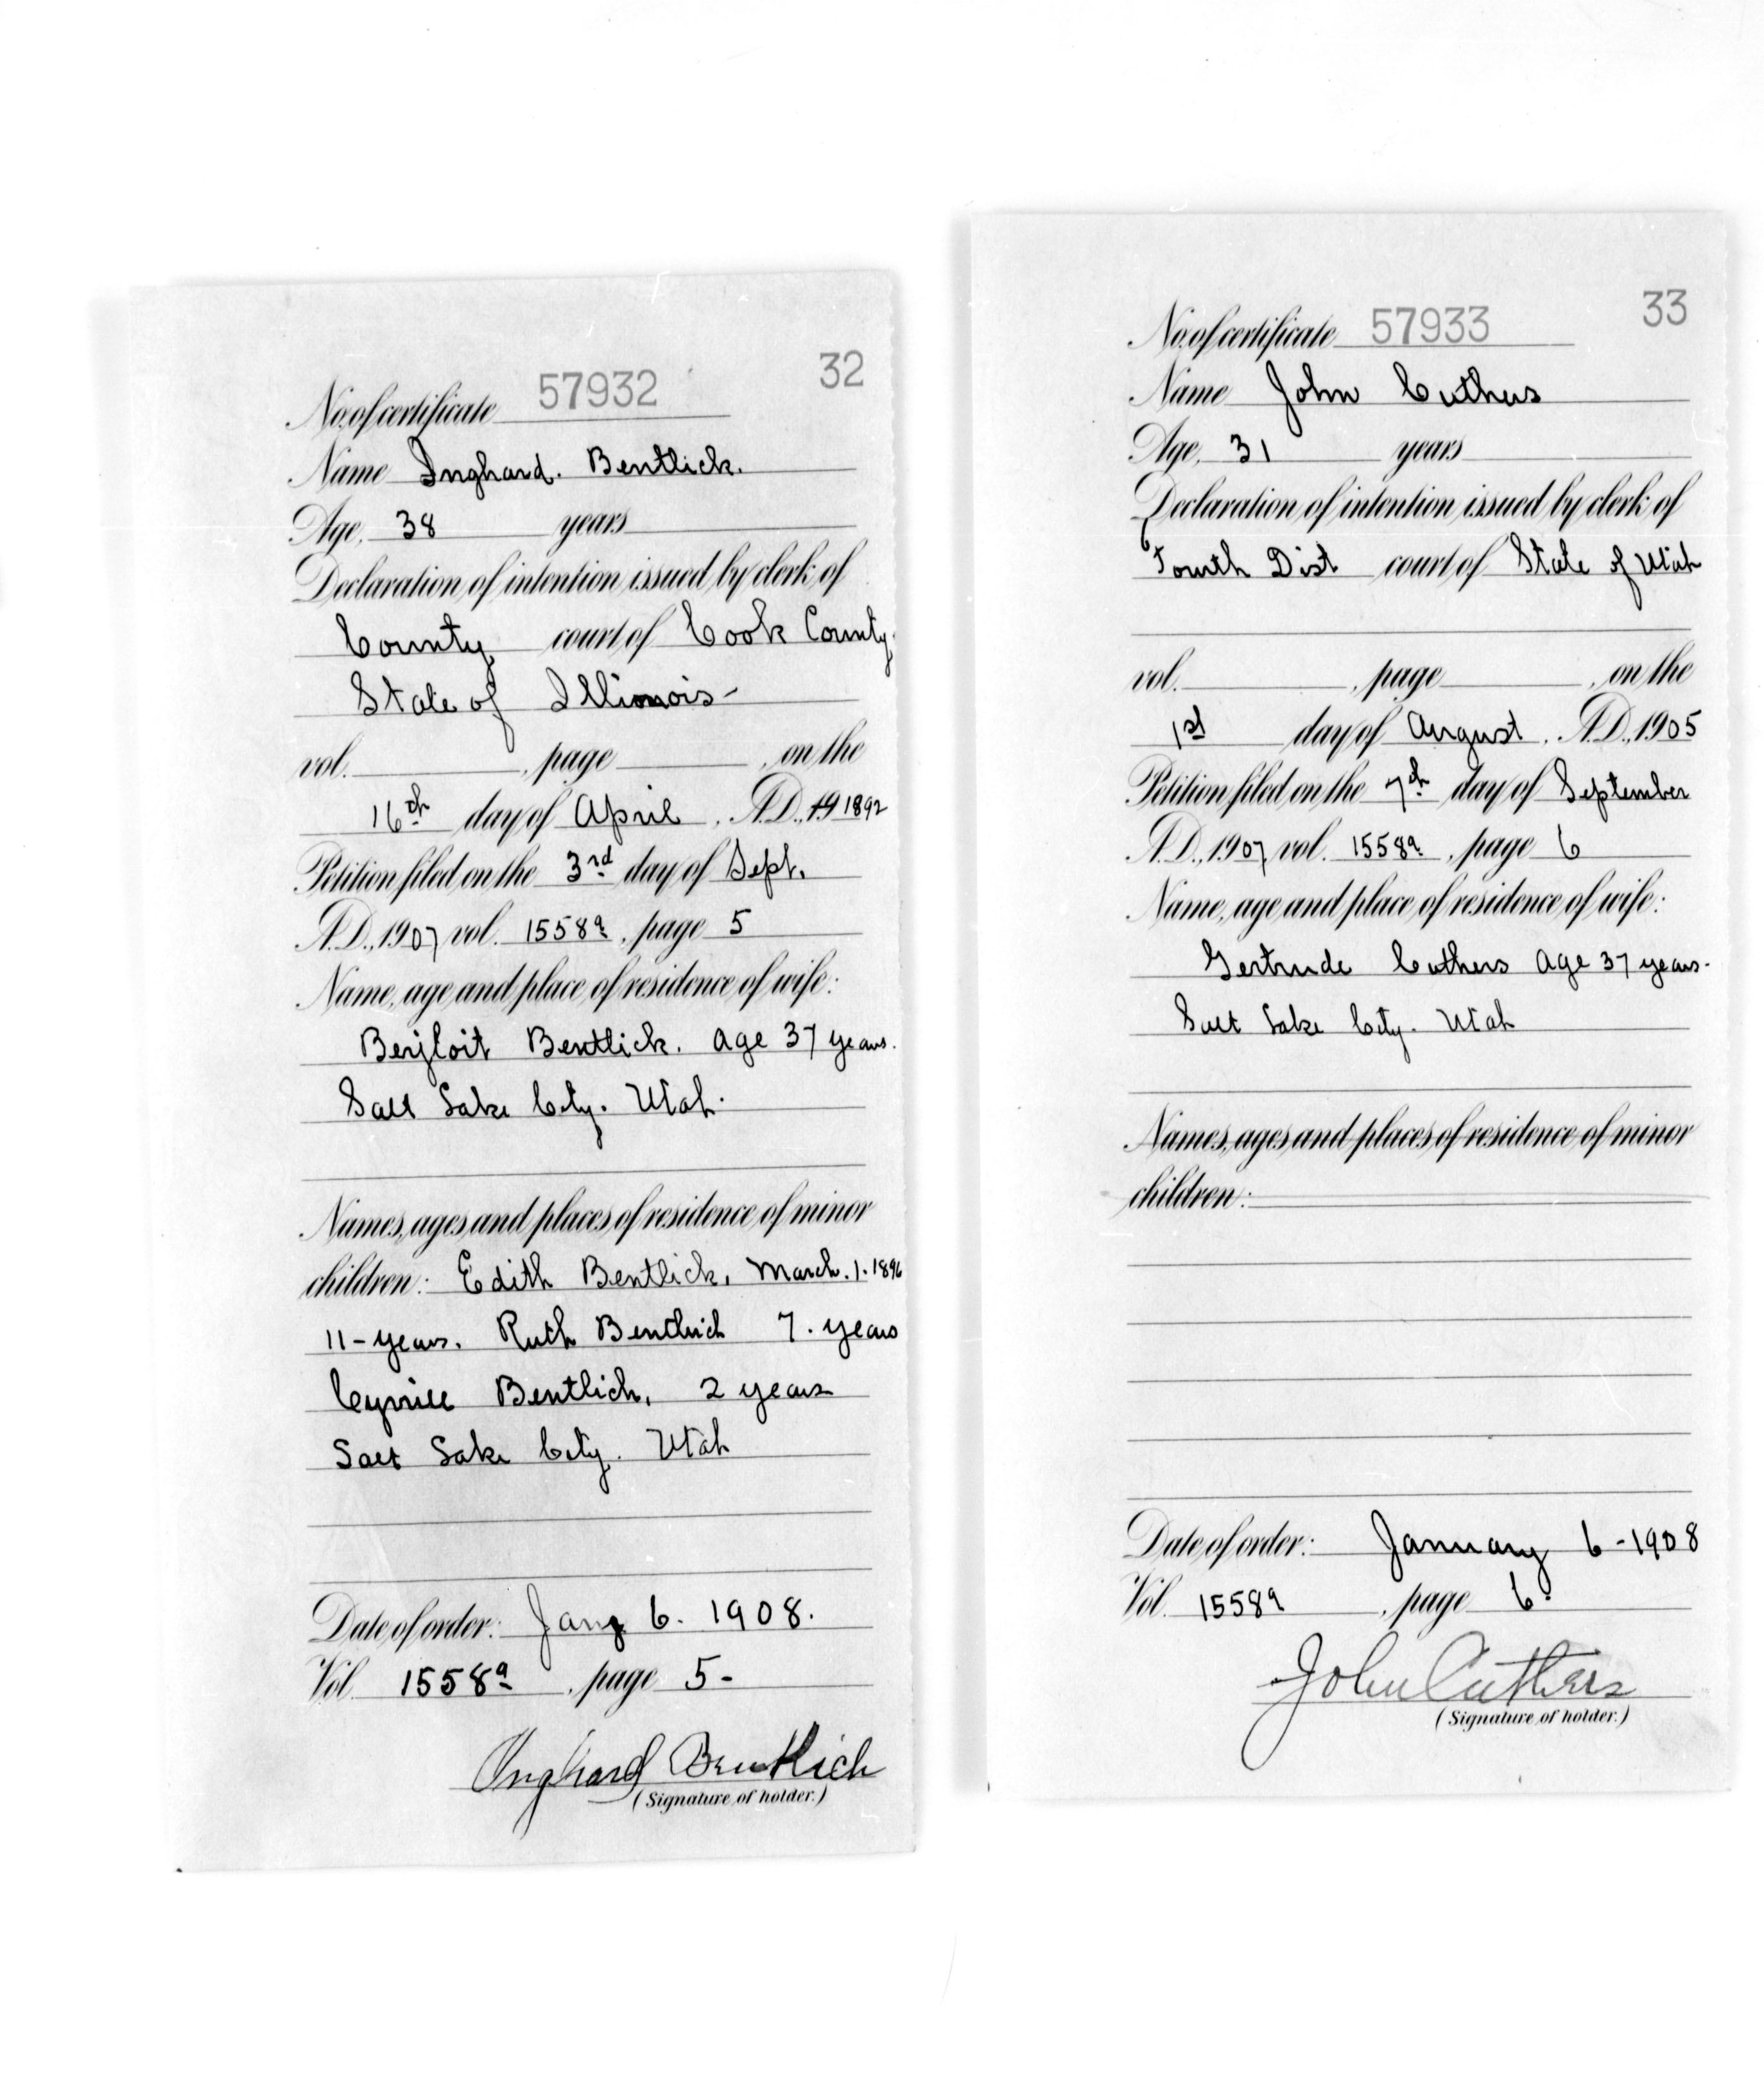 32
No. of certificate 57932
Name Inghard. Bentlick.
Age, 38 years
Declaration of intention issued by clerk of
County court of Cook County.
State of Illinois-
vol. , page , on the
16th day of April , A.D., 19 1892
Petition filed on the 3rd day of Sept.
A.D., 1907 vol. 1558a , page 5
Name, age and place of residence of wife:
Bentlick. Age 37 years.
Salt Lake City. Utah.
Names, ages and places of residence of minor
children: Edith Bentlick, March. 1. 1896
11-years. Ruth Bentlich 7. years
Cyrill Bentlich, 2 years
Salt Lake City. Utah
Date of order: Jany 6. 1908.
Vol. 1558a , page 5-
Inghard Bentlich
(Signature of holder.)
33
No. of certificate 57933
Name John Cuthers
Age, 31 years
Declaration of intention issued by clerk of
Fourth Dist court of State of Utah
vol. , page , on the
1st day of August , A.D., 1905
Petition filed on the 7th day of September
A.D., 1907 vol. 1558a , page 6
Name, age and place of residence of wife:
Gertrude Cuthers Age 37 years.
Salt Lake City. Utah
Names, ages and places of residence of minor
children:
Date of order: January 6-1908
Vol. 1558a , page 6.
John Cuthers
(Signature of holder.)